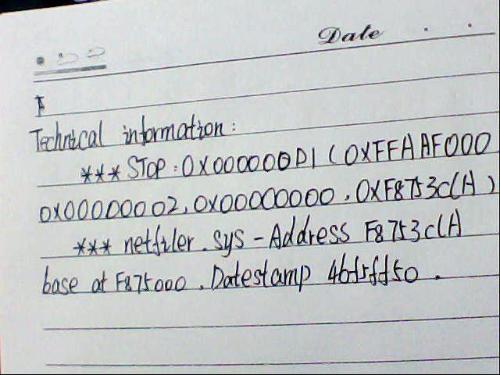 Date . .
Technical information:
*** STOP: 0X000000D1 (0XFFAAF000
0X00000002, 0X00000000, 0XF8753C1A)
*** netfiler.sys - Address F8753C1A
base at F875000. Datestamp 4bf5fd50.